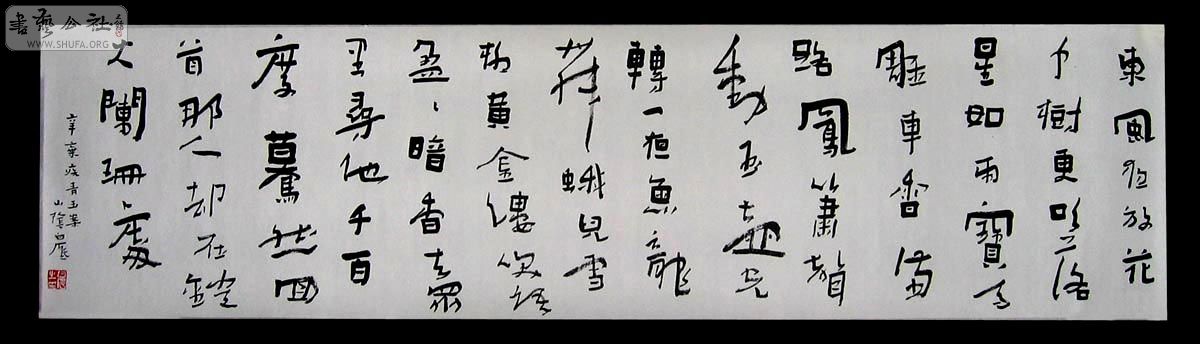 東風夜放花
千樹更吹落
星如雨寶馬
雕車香滿
路鳳簫聲
動玉壺光
轉一夜魚龍
舞蛾兒雪
柳黃金縷笑語
盈〻暗香去眾
里尋他千百
度驀然回
首那人却在燈
火闌珊處
辛棄疾青玉案
山陰
書藝公社
WWW.SHUFA.ORG